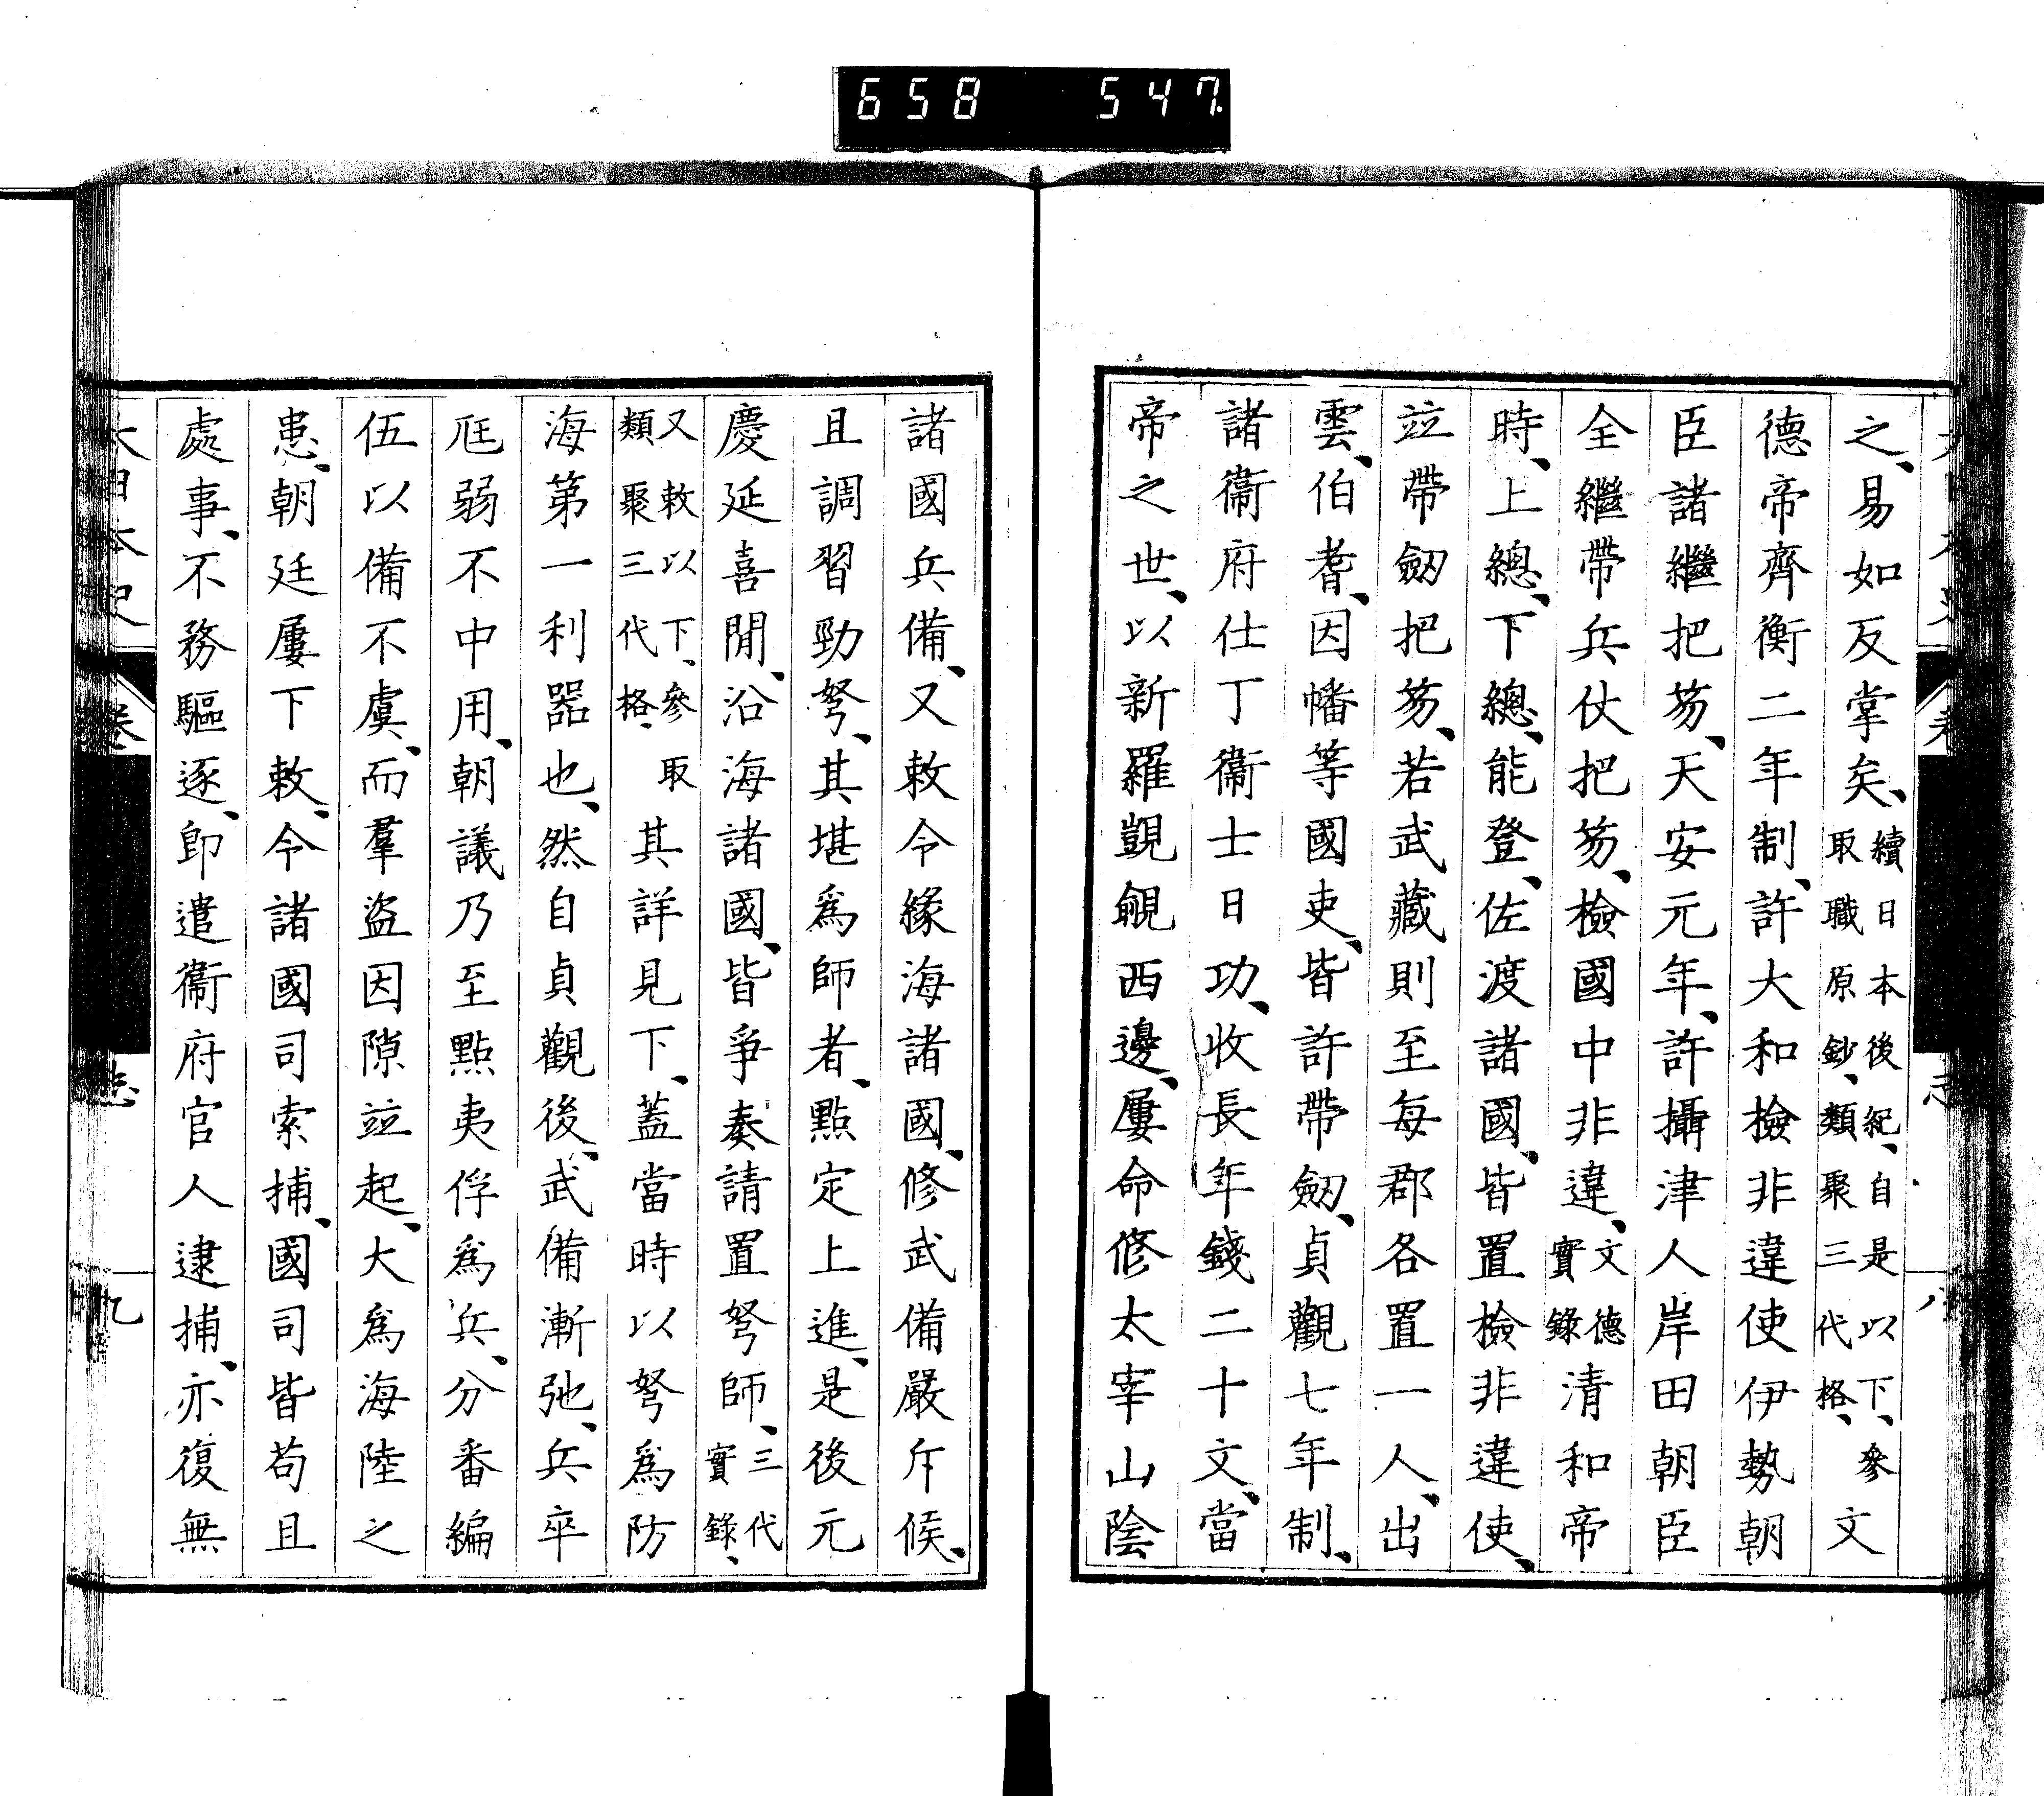 658 547
之、易如反掌矣、續日本後紀、自是以下、參取職原鈔、類聚三代格、文
德帝齊衡二年制、許大和檢非違使伊勢朝
臣諸繼把笏、天安元年、許攝津人岸田朝臣
全繼帶兵仗把笏、檢國中非違、文德實錄清和帝
時、上總、下總、能登、佐渡諸國、皆置檢非違使、
竝帶劒把笏、若武藏則至每郡各置一人、出
雲、伯耆、因幡等國吏、皆許帶劒、貞觀七年制、
諸衞府仕丁衞士日功、收長年錢二十文、當
帝之世、以新羅覬覦西邊、屢命修太宰山陰
諸國兵備、又敕令緣海諸國、修武備嚴斥候、
且調習勁弩、其堪爲師者、點定上進、是後元
慶延喜閒、沿海諸國、皆爭奏請置弩師、三代實錄、
又敕以下、參取類聚三代格、其詳見下、蓋當時以弩爲防
海第一利器也、然自貞觀後、武備漸弛、兵卒
尫弱不中用、朝議乃至點夷俘爲兵、分番編
伍以備不虞、而羣盜因隙竝起、大爲海陸之
患、朝廷屢下敕、令諸國司索捕、國司皆苟且
處事、不務驅逐、卽遣衞府官人逮捕、亦復無
大日本史 卷 志 九